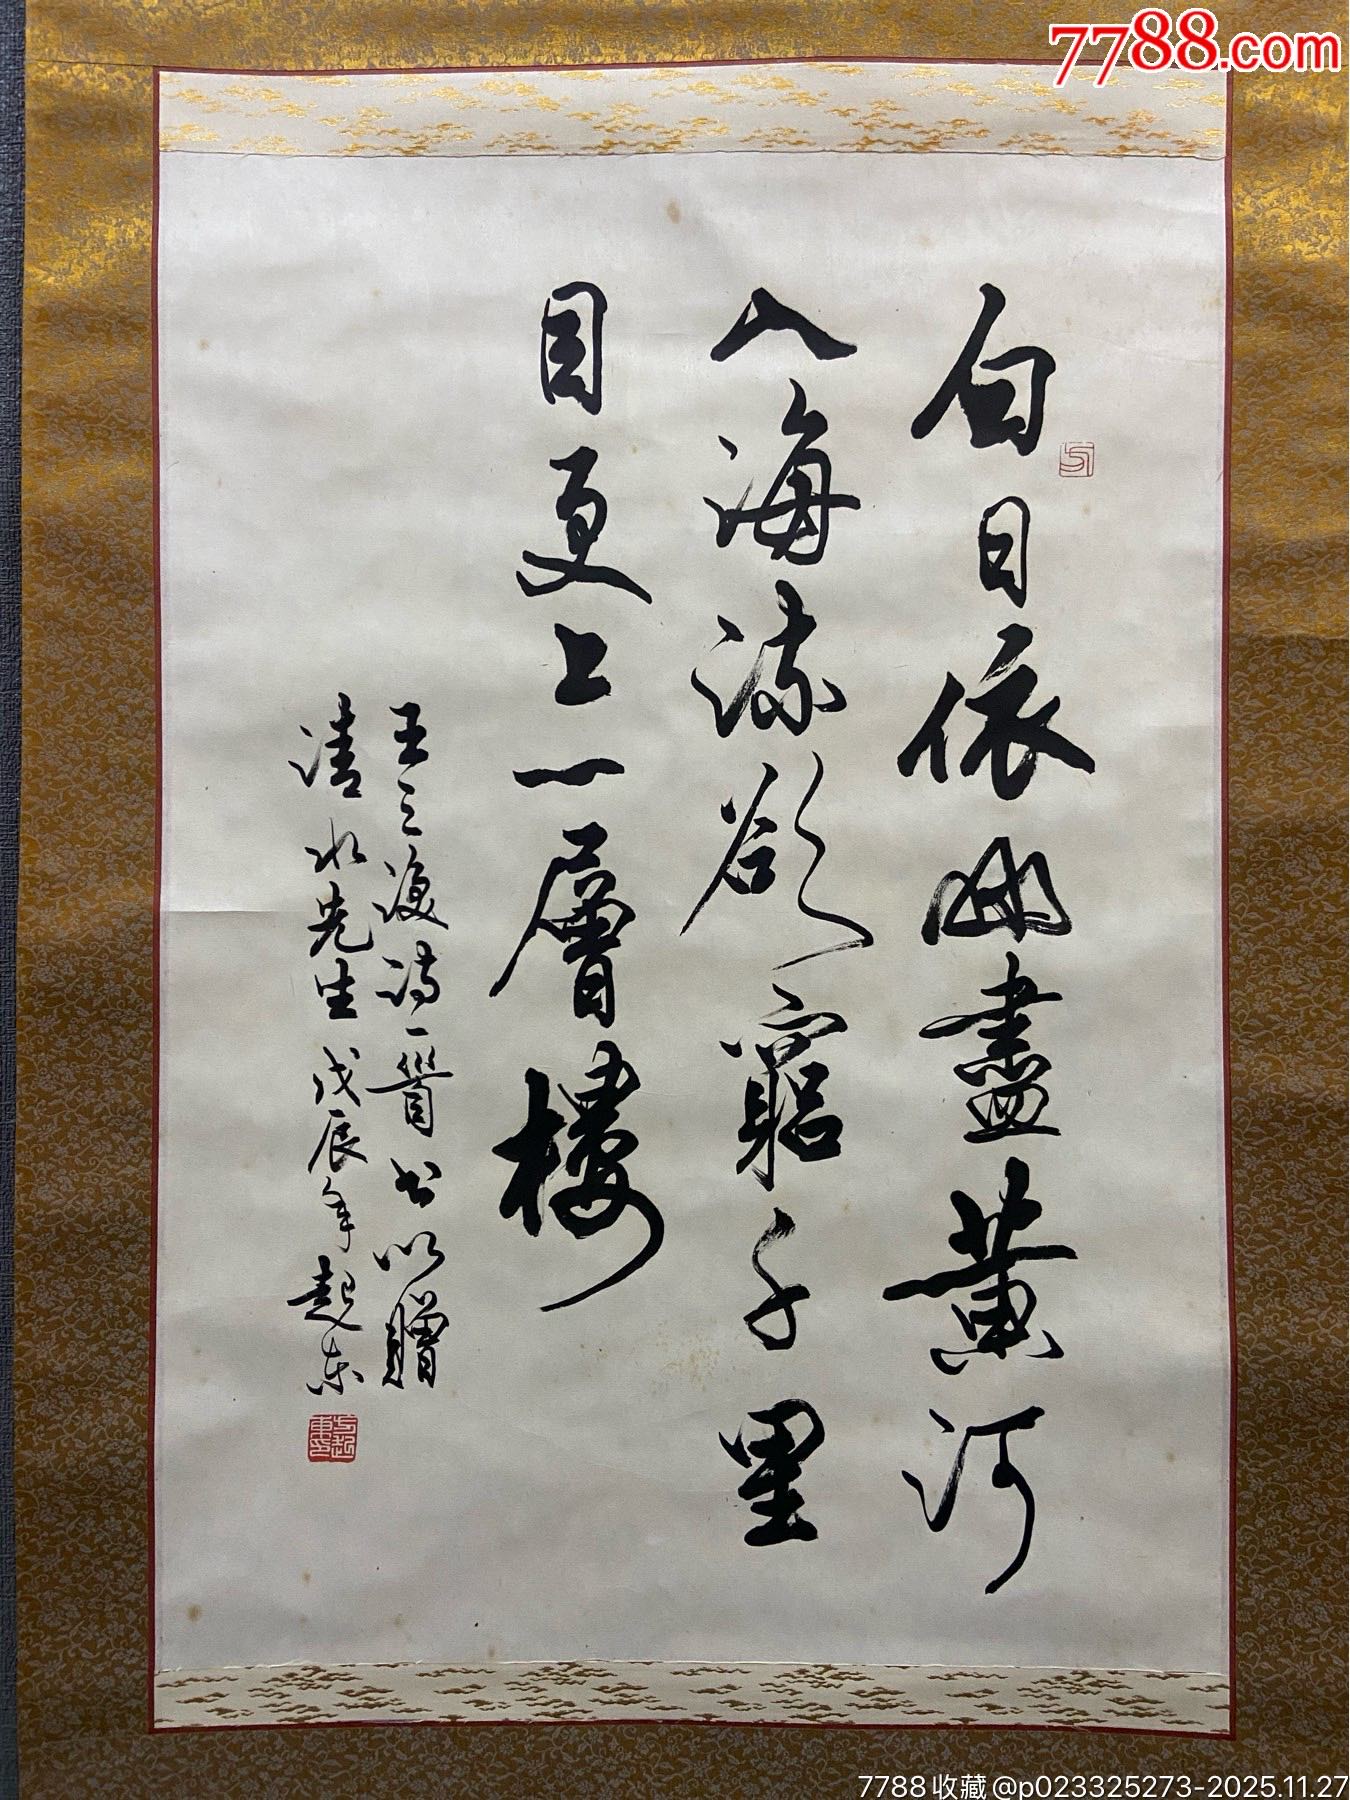 7788.com
白日依山盡黃河
入海流欲窮千里
目更上一層樓
王之渙詩一首書以贈
清水先生戊辰年起東
方
方起東印
7788收藏@p023325273-2025.11.27